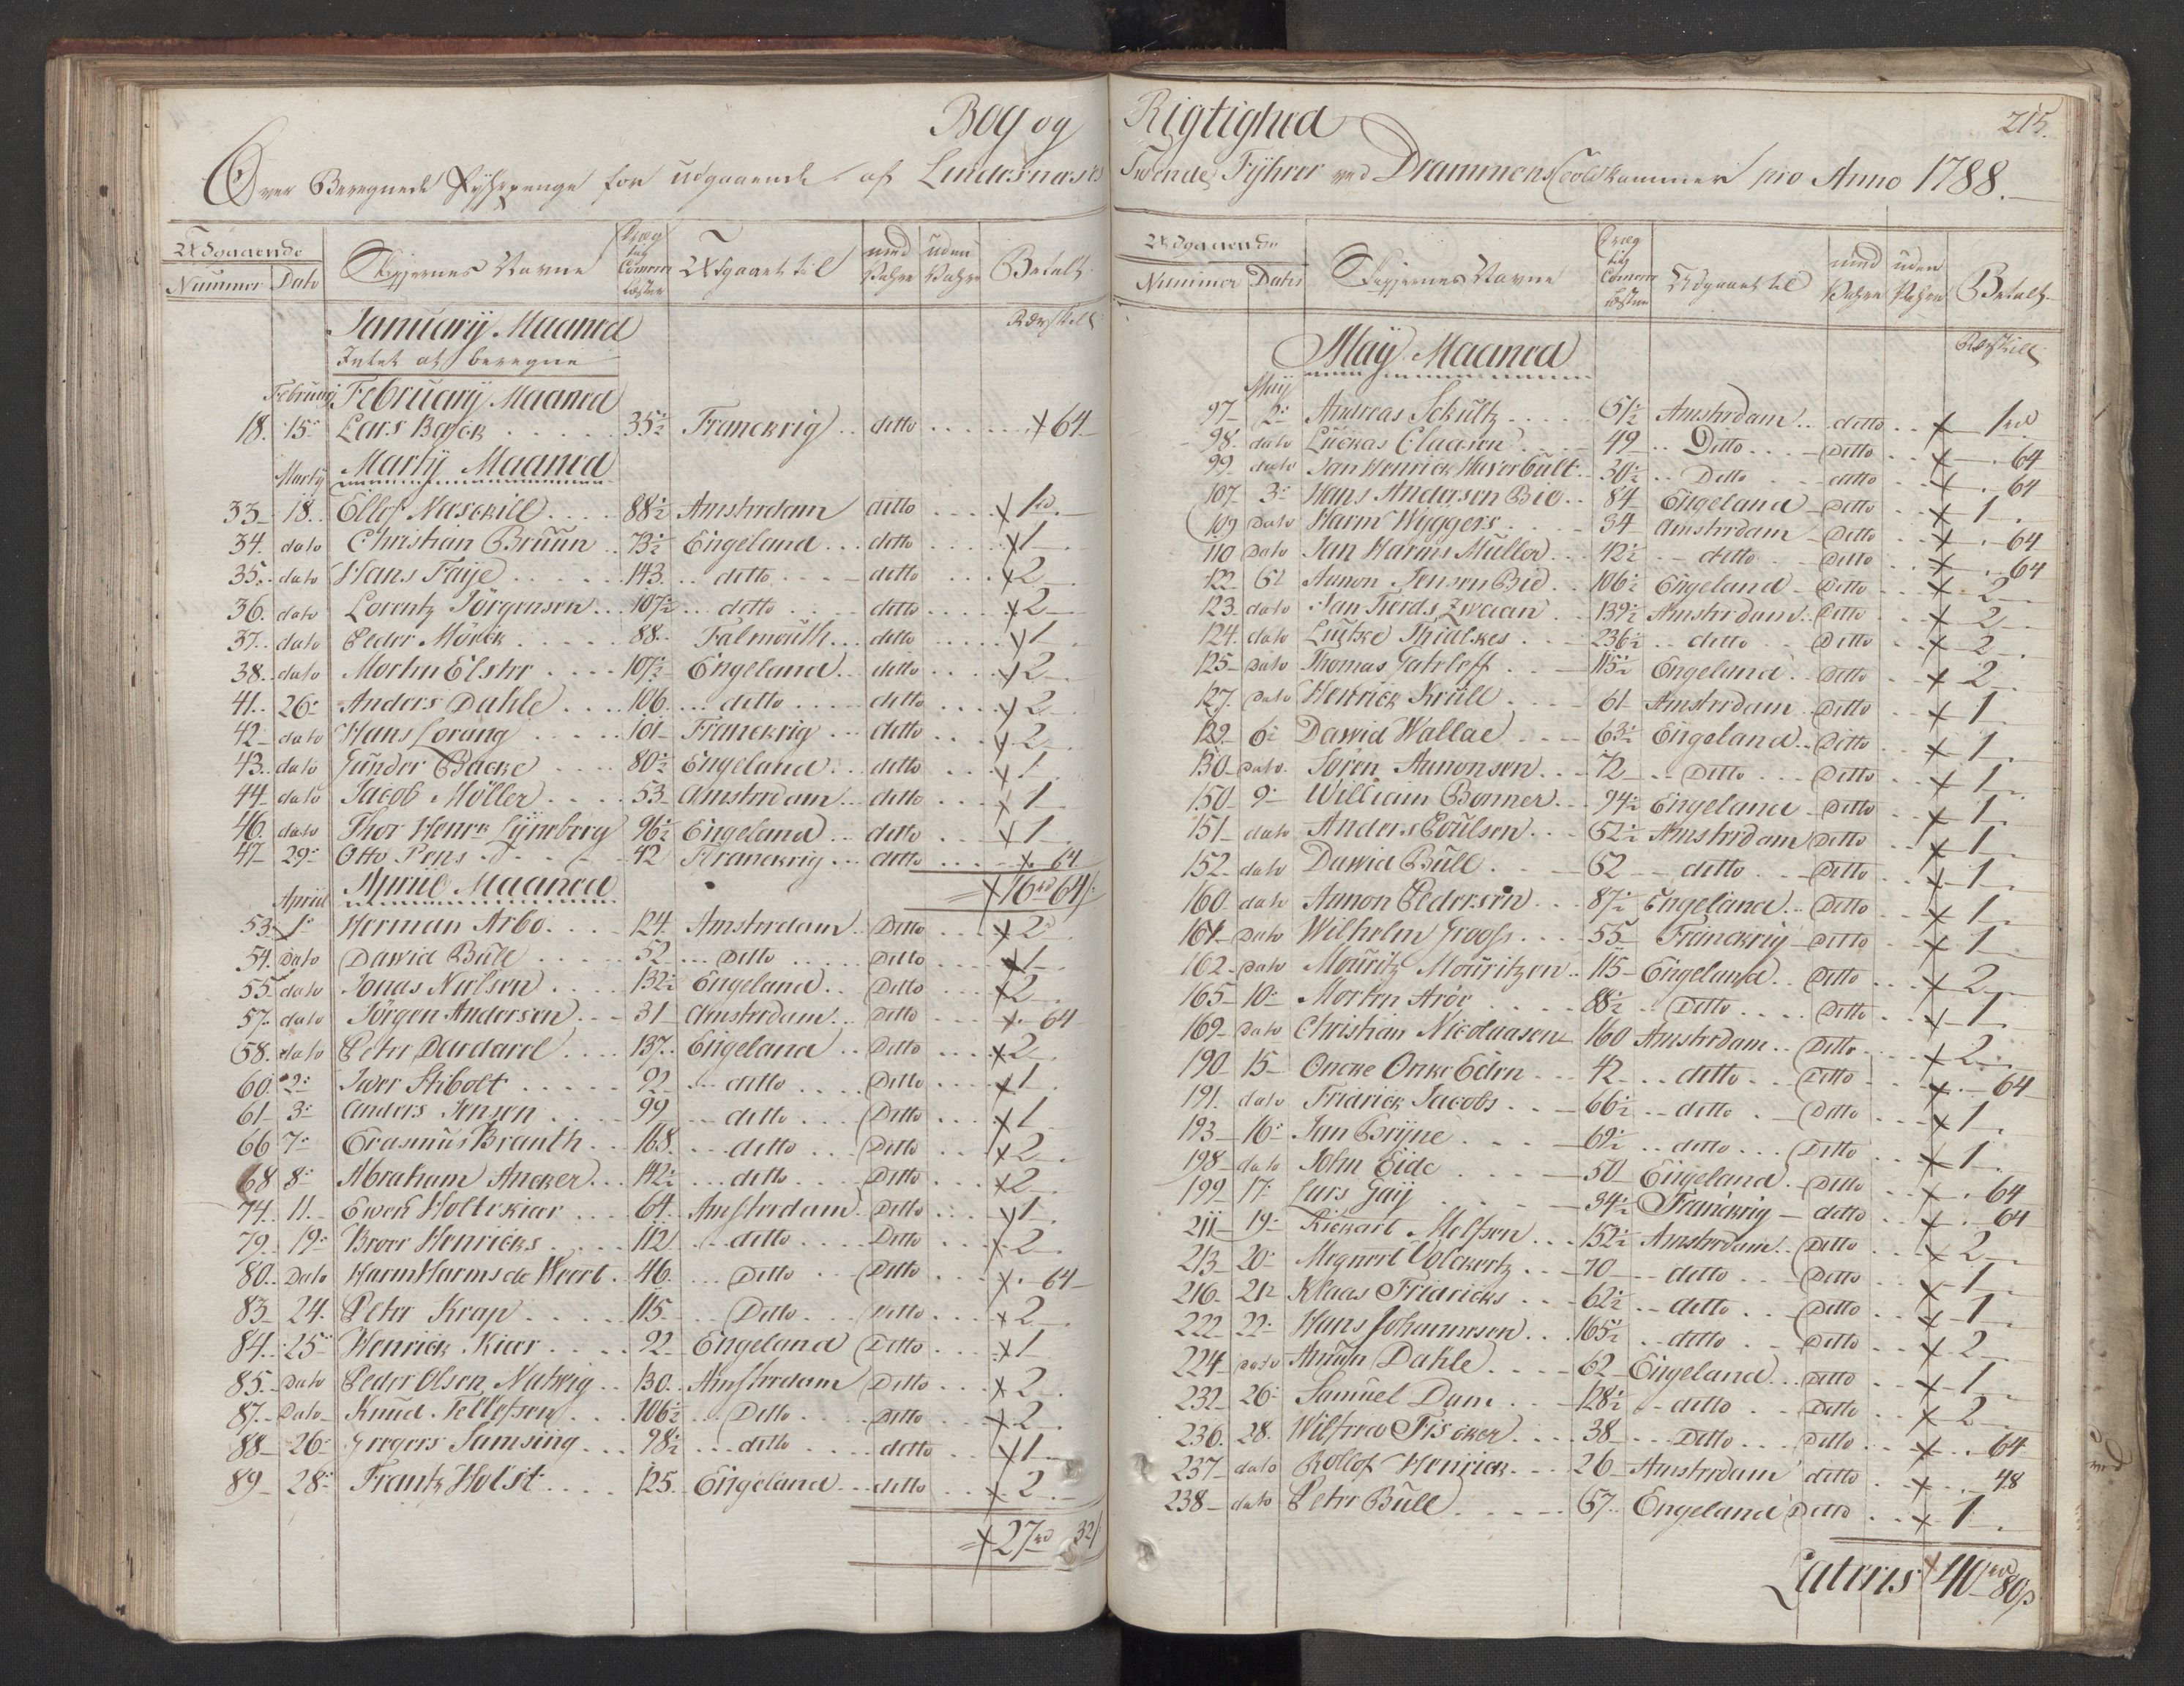 Bog og Rigtighed
215.
Over Beregnede Fyhrpenge for udgaaende af Lindesnæses Tvende Fyhrer ved Drammens Toldkammer pro Anno 1788.
Udgaaende Skippernes Navne Dræg tig Comerce Læster Udgaaet til med uden Betalt
Nummer Dato
January Maaned Rdr skill
Intet at beregne
February February Maaned
18. 15 Lars Bajer 35½ Franckrig ditto 64
Marty Marty Maaned
33 18 Ellof Naschill 88½ Amsterdam ditto 1 rd
34. dato Christian Bruun 73½ Engeland ditto 1
35. dato Hans Faye 143 ditto ditto 2
36. dato Lorentz Jörgensen 107½ ditto ditto 2
37. dato Peder Mörck 88 Falmouth ditto 1
38. dato Morten Elster 107½ Engeland ditto 2
41. 26 Anders Dahle 106 ditto ditto 2
42 dato Hans Lorang 101 Franckrig ditto 2
43. dato Gunder Backe 80½ Engeland ditto 1
44 dato Jacob Möller 53 Amsterdam ditto 1
46. dato Thor Henr Lyneberg 96½ Engeland ditto 1
47 29 Otto Pens 42 Franckrig ditto 64
16 rd 64
April April Maaned
53 1 Herman Arbo 124 Amsterdam Ditto 2
54. Dato David Bull 52 Ditto Ditto 1
55 dato Jonas Nielsen 132½ Engeland Ditto 2
57. dato Jörgen Andersen 31 Amsterdam Ditto 64
58. dato Peter Dardarel 137 Engeland Ditto 2
60. 2 Iver Stibolt 92 ditto Ditto 1
61 3 Anders Jensen 99 ditto Ditto 1
66 7 Erasmus Branth 168 ditto Ditto 2
68 8 Abraham Ancker 142½ ditto Ditto 2
74. 11 Ewen Holterkiær 64 Amsterdam Ditto 1
79 19 Broer Henricks 112 ditto Ditto 2
80. Dato Harm Harms de Weert 46 Ditto Ditto 64
83 24. Peter Krap 115 Ditto Ditto 2
84. 25 Henrick Kiær 92 Engeland Ditto 1
85. Dato Peder Olsen Natvig 130 Amsterdam Ditto 2
87. Dato Knud Tellefsen 106½ Ditto Ditto 2
88 26 Gregers Samsing 98½ ditto ditto 1
89 28 Frantz Holst 125 Engeland ditto 2
27 rd 32
Udgaaende Skippernes Navne Dræg tig Comerce Læster Udgaaet til med uden Betalt
Nummer Dato
May Maaned Rdr skill
May
97 2 Andreas Schultz 51½ Amsterdam ditto 1 rd
98. dato Luckas Claasen 49 Ditto Ditto 64
99 dato Jan Henrick Haverbult 30½ Ditto ditto 64
107 3 Hans Andersen Bie 84 Engeland Ditto 1
109 Dato Harm Wiggers 34 Amsterdam Ditto 64
110 Dato Jan Harms Muller 42½ ditto Ditto 64
122 Aanon Jensen Bie 106½ Engeland Ditto 2
123. dato Jan Tierds Zwaan 139½ Amsterdam Ditto 2
124. dato Luitze Thialkes 236½ ditto Ditto 2
125 Dato Thomas Tatrleff 115½ Engeland Ditto 2
127. Dato Henrick Krull 61 Amsterdam Ditto 1
129. 6 David Wallae 63½ Engeland Ditto 1
130 Dato Sören Aanonsen 72 Ditto Ditto 1
150 9 William Bonner 94½ Engeland Ditto 1
151 dato Anders Poulsen 52½ Amsterdam Ditto 1
152 dato David Bull 52 ditto Ditto 1
160 dato Aanon Pedersen 87½ Engeland Ditto 1
161 Dato Wilhelm Grooss 55 Franckrig Ditto 1
162 Dato Mouritz Mouritzen 115 Engeland Ditto 2
165 10 Morten Aröe 88½ Ditto Ditto 1
169 Dato Christian Nicolaasen 160 Amsterdam Ditto 2
190 15 Oncke Onke Eden 42 ditto Ditto 64
191. dato Fridrick Jacobs 66½ ditto Ditto 1
193 16 Jan Bryne 69½ ditto Ditto 1
198 dato John Eide 50 Engeland Ditto 64
199 17 Lars Gaij 34½ Franckrig ditto 64
211 19 Rickart Melfsen 152½ Amsterdam Ditto 2
213 20 Megnert Volckertz 70 ditto Ditto 1
216 21 Klaas Fridricks 62½ ditto Ditto 1
222 22 Hans Johannesen 165½ ditto Ditto 2
224 Dato Amun Dahle 62 Engeland Ditto 1
232 26 Samuel Dam 128½ ditto Ditto 2
236. 28. Wilfred Fiscker 38 Ditto Ditto 64
237 dato Rollof Henrick 26 Amsterdam ditto 48
238 dato Peter Bull 57 Engeland Ditto 1
Lateris 40 rd 80 s